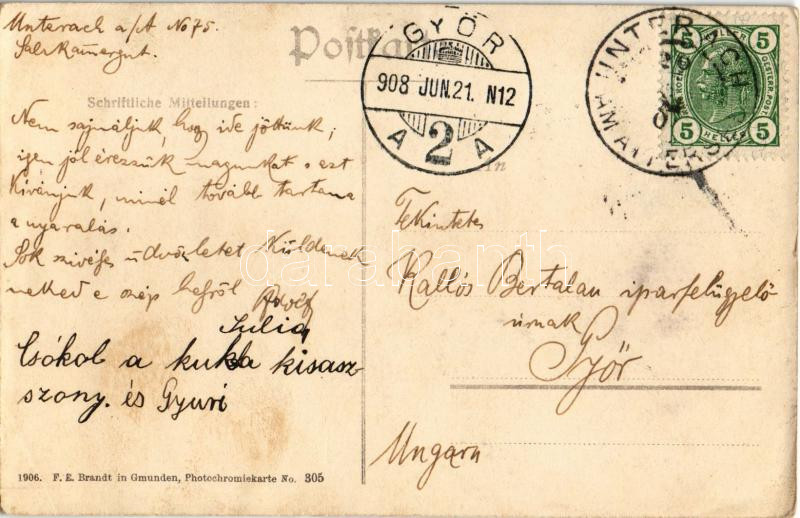 Unterach a/A No 75.
Salzkammergut.
Postkarte
Schriftliche Mitteilungen:
Nem sajnáljuk, hogy ide jöttünk,
igen jól érezzük magunkat s ezt
kivánjuk, minél tovább tartana
a nyaralás.
Sok szivélyes üdvözletet küldenek
neked e szép helyről
Adolf
Julia
Csókol a kukla kisasz-
szony. és Gyuri
1906. F. E. Brandt in Gmunden, Photochromiekarte No. 305
GYŐR
908 JUN.21. N12
A 2 A
UNTERACH
AM ATTERSEE
5 HELLER 5
5 HELLER 5
In
Tekintetes
Kallós Bertalan iparfelügyelő
úrnak
Győr
Ungarn
darabanth